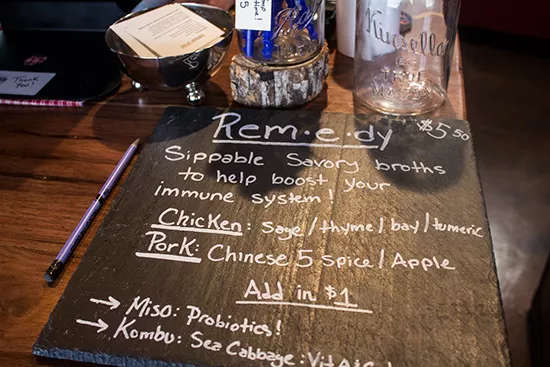 5
time!
Ball
Thank
you!
Kinsella
Rem·e·dy $5.50
Sippable Savory broths
to help boost your
immune system!
Chicken: Sage/thyme/bay/tumeric
Pork: Chinese 5 spice/Apple
Add in $1
→ Miso: Probiotics!
→ Kombu: Sea Cabbage: Vit A